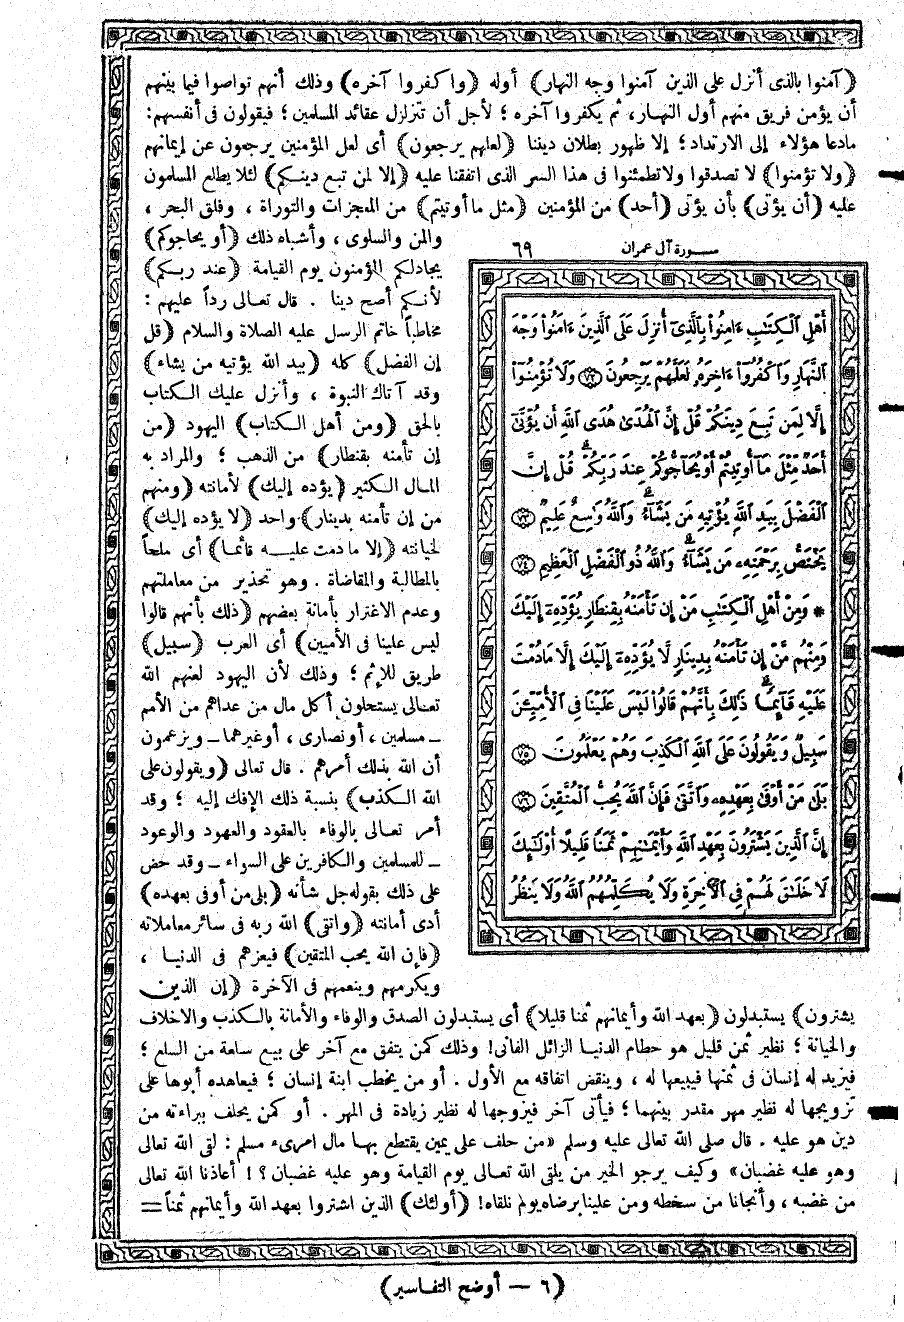 (آمنوا بالذى أنزل على الذين آمنوا وجه النهار) أوله (واكفروا آخره) وذلك أنهم تواصوا فيما بينهم
أن يؤمن فريق منهم أول النهار، ثم يكفروا آخره ؛ لأجل أن تتزلزل عقائد المسلمين ؛ فيقولون فى أنفسهم:
مادعا هؤلاء إلى الارتداد ؛ إلا ظهور بطلان ديننا (لعلهم يرجعون) أى لعل المؤمنين يرجعون عن إيمانهم
(ولا تؤمنوا) لا تصدقوا ولا تطمئنوا فى هذا السر الذى اتفقنا عليه (إلا لمن تبع دينكم) لئلا يطلع المسلمون
عليه (أن يؤتى) بأن يؤتى (أحد) من المؤمنين (مثل ما أوتيتم) من المعجزات والتوراة ، وفلق البحر ،
والمن والسلوى ، وأشباه ذلك (أو يحاجوكم)
يجادلكم المؤمنون يوم القيامة (عند ربكم)
لأنكم أصح دينا . قال تعالى رداً عليهم :
مخاطباً خاتم الرسل عليه الصلاة والسلام (قل
إن الفضل) كله (بيد الله يؤتيه من يشاء)
وقد آتاك النبوة ، وأنزل عليك الكتاب
بالحق (ومن أهل الكتاب) اليهود (من
إن تأمنه بقنطار) من الذهب ؛ والمراد به
المال الكثير (يؤده إليك) لأمانته (ومنهم
من إن تأمنه بدينار) واحد (لا يؤده إليك)
لخيانته (إلا ما دمت عليه قائما) أى ملحاً
بالمطالبة والمقاضاة . وهو تحذير من معاملتهم
وعدم الاغترار بأمانة بعضهم (ذلك بأنهم قالوا
ليس علينا فى الأميين) أى العرب (سبيل)
طريق للإثم ؛ وذلك لأن اليهود لعنهم الله
تعالى يستحلون أكل مال من عداهم من الأمم
ــ مسلمين ، أو نصارى ، أو غيرهما ــ ويزعمون
أن الله بذلك أمرهم . قال تعالى (ويقولون على
الله الكذب) بنسبة ذلك الإفك إليه ؛ وقد
أمر تعالى بالوفاء بالعقود والعهود والوعود
ــ للمسلمين والكافرين على السواء ــ وقد حض
على ذلك بقوله جل شأنه (بلى من أوفى بعهده)
أدى أمانته (واتقى) الله ربه فى سائر معاملاته
(فإن الله يحب المتقين) فيعزهم فى الدنيا ،
ويكرمهم وينعمهم فى الآخرة (إن الذين
سورة آل عمران ٦٩
أَهْلِ ٱلْكِتَٰبِ ءَامِنُوا۟ بِٱلَّذِىٓ أُنزِلَ عَلَى ٱلَّذِينَ ءَامَنُوا۟ وَجْهَ
ٱلنَّهَارِ وَٱكْفُرُوٓا۟ ءَاخِرَهُۥ لَعَلَّهُمْ يَرْجِعُونَ ﴿٧٢﴾ وَلَا تُؤْمِنُوٓا۟
إِلَّا لِمَن تَبِعَ دِينَكُمْ قُلْ إِنَّ ٱلْهُدَىٰ هُدَى ٱللَّهِ أَن يُؤْتَىٰٓ
أَحَدٌ مِّثْلَ مَآ أُوتِيتُمْ أَوْ يُحَآجُّوكُمْ عِندَ رَبِّكُمْ ۗ قُلْ إِنَّ
ٱلْفَضْلَ بِيَدِ ٱللَّهِ يُؤْتِيهِ مَن يَشَآءُ ۗ وَٱللَّهُ وَٰسِعٌ عَلِيمٌ ﴿٧٣﴾
يَخْتَصُّ بِرَحْمَتِهِۦ مَن يَشَآءُ ۗ وَٱللَّهُ ذُو ٱلْفَضْلِ ٱلْعَظِيمِ ﴿٧٤﴾
* وَمِنْ أَهْلِ ٱلْكِتَٰبِ مَنْ إِن تَأْمَنْهُ بِقِنطَارٍ يُؤَدِّهِۦٓ إِلَيْكَ
وَمِنْهُم مَّنْ إِن تَأْمَنْهُ بِدِينَارٍ لَّا يُؤَدِّهِۦٓ إِلَيْكَ إِلَّا مَا دُمْتَ
عَلَيْهِ قَآئِمًا ۗ ذَٰلِكَ بِأَنَّهُمْ قَالُوا۟ لَيْسَ عَلَيْنَا فِى ٱلْأُمِّيِّۦنَ
سَبِيلٌ وَيَقُولُونَ عَلَى ٱللَّهِ ٱلْكَذِبَ وَهُمْ يَعْلَمُونَ ﴿٧٥﴾
بَلَىٰ مَنْ أَوْفَىٰ بِعَهْدِهِۦ وَٱتَّقَىٰ فَإِنَّ ٱللَّهَ يُحِبُّ ٱلْمُتَّقِينَ ﴿٧٦﴾
إِنَّ ٱلَّذِينَ يَشْتَرُونَ بِعَهْدِ ٱللَّهِ وَأَيْمَٰنِهِمْ ثَمَنًا قَلِيلًا أُو۟لَٰٓئِكَ
لَا خَلَٰقَ لَهُمْ فِى ٱلْءَاخِرَةِ وَلَا يُكَلِّمُهُمُ ٱللَّهُ وَلَا يَنظُرُ
يشترون) يستبدلون (بعهد الله وأيمانهم ثمنا قليلا) أى يستبدلون الصدق والوفاء والأمانة بالكذب والاخلاف
والخيانة ؛ نظير ثمن قليل هو حطام الدنيا الزائل الفانى! وذلك كمن يتفق مع آخر على بيع سلعة من السلع ؛
فيزيد له إنسان فى ثمنها فيبيعها له ، وينقض اتفاقه مع الأول . أو من يخطب ابنة إنسان ؛ فيعاهده أبوها على
تزويجها له نظير مهر مقدر بينهما ؛ فيأتى آخر فيزوجها له نظير زيادة فى المهر . أو كمن يحلف ببراءته من
دين هو عليه . قال صلى الله تعالى عليه وسلم «من حلف على يمين يقتطع بها مال امرىء مسلم : لقى الله تعالى
وهو عليه غضبان» وكيف يرجو الخير من يلقى الله تعالى يوم القيامة وهو عليه غضبان ؟ ! أعاذنا الله تعالى
من غضبه ، وأنجانا من سخطه ومن علينا برضاه يوم نلقاه! (أولئك) الذين اشتروا بعهد الله وأيمانهم ثمناً ==
(٦ — أوضح التفاسير)